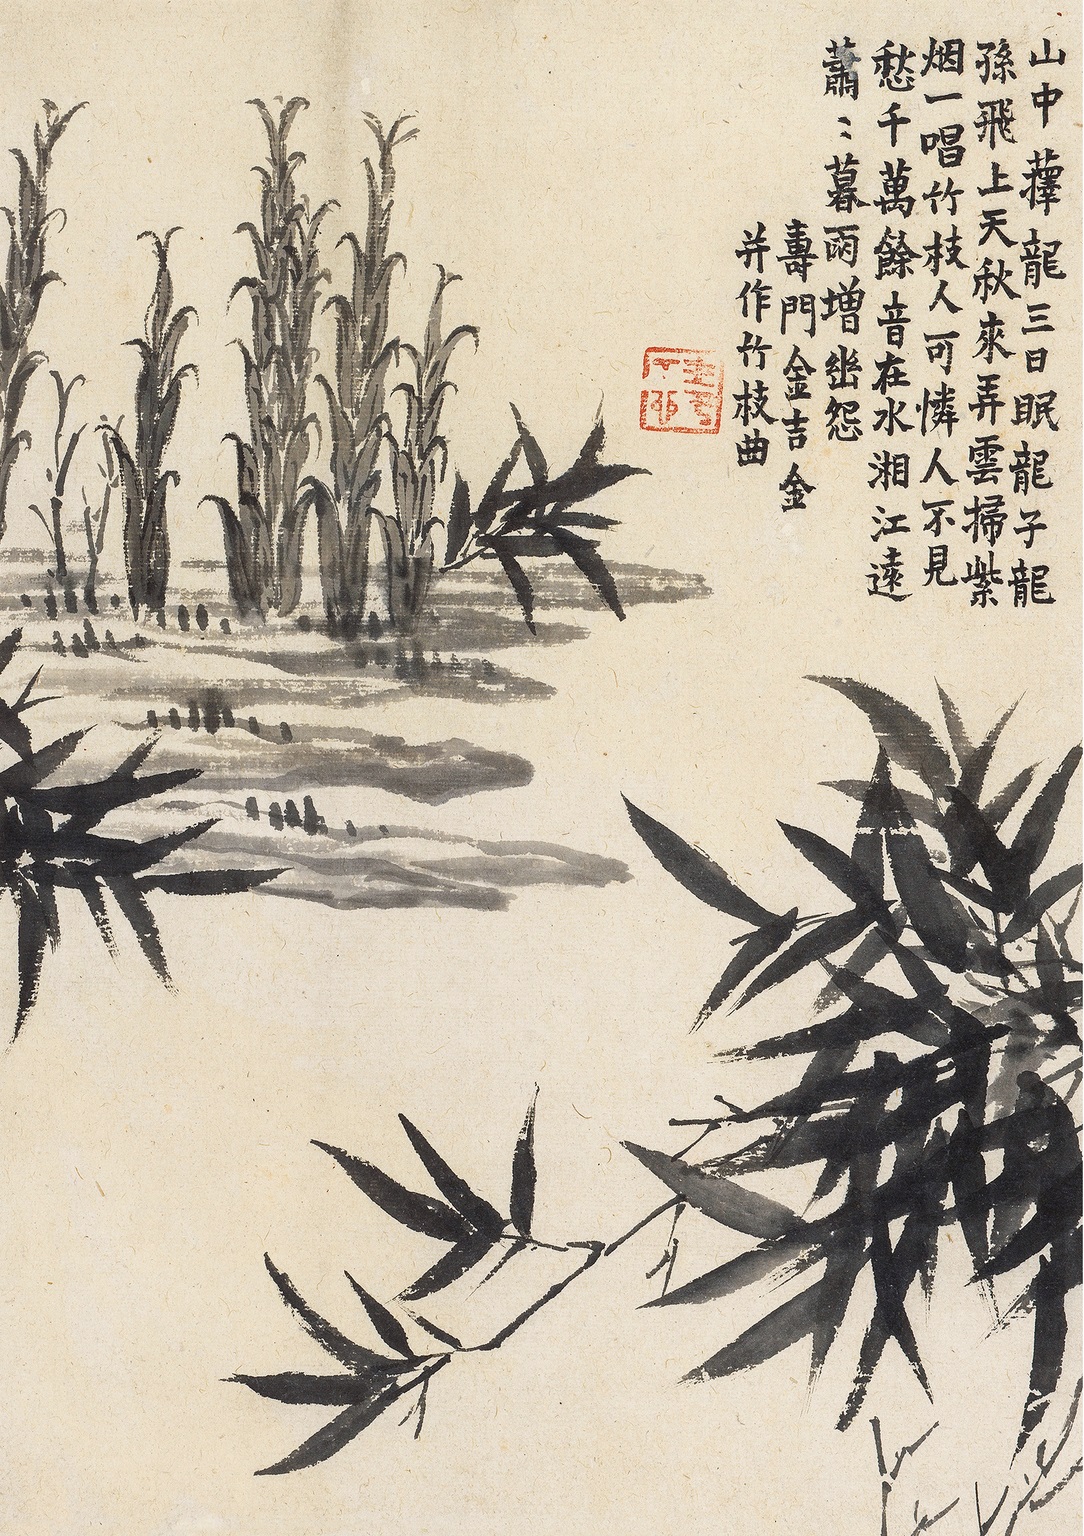 山中蘀龍三日眠龍子龍
孫飛上天秋來弄雲掃紫
烟一唱竹枝人可憐人不見
愁千萬餘音在水湘江遠
蕭〻暮雨增幽怨
壽門金吉金
并作竹枝曲